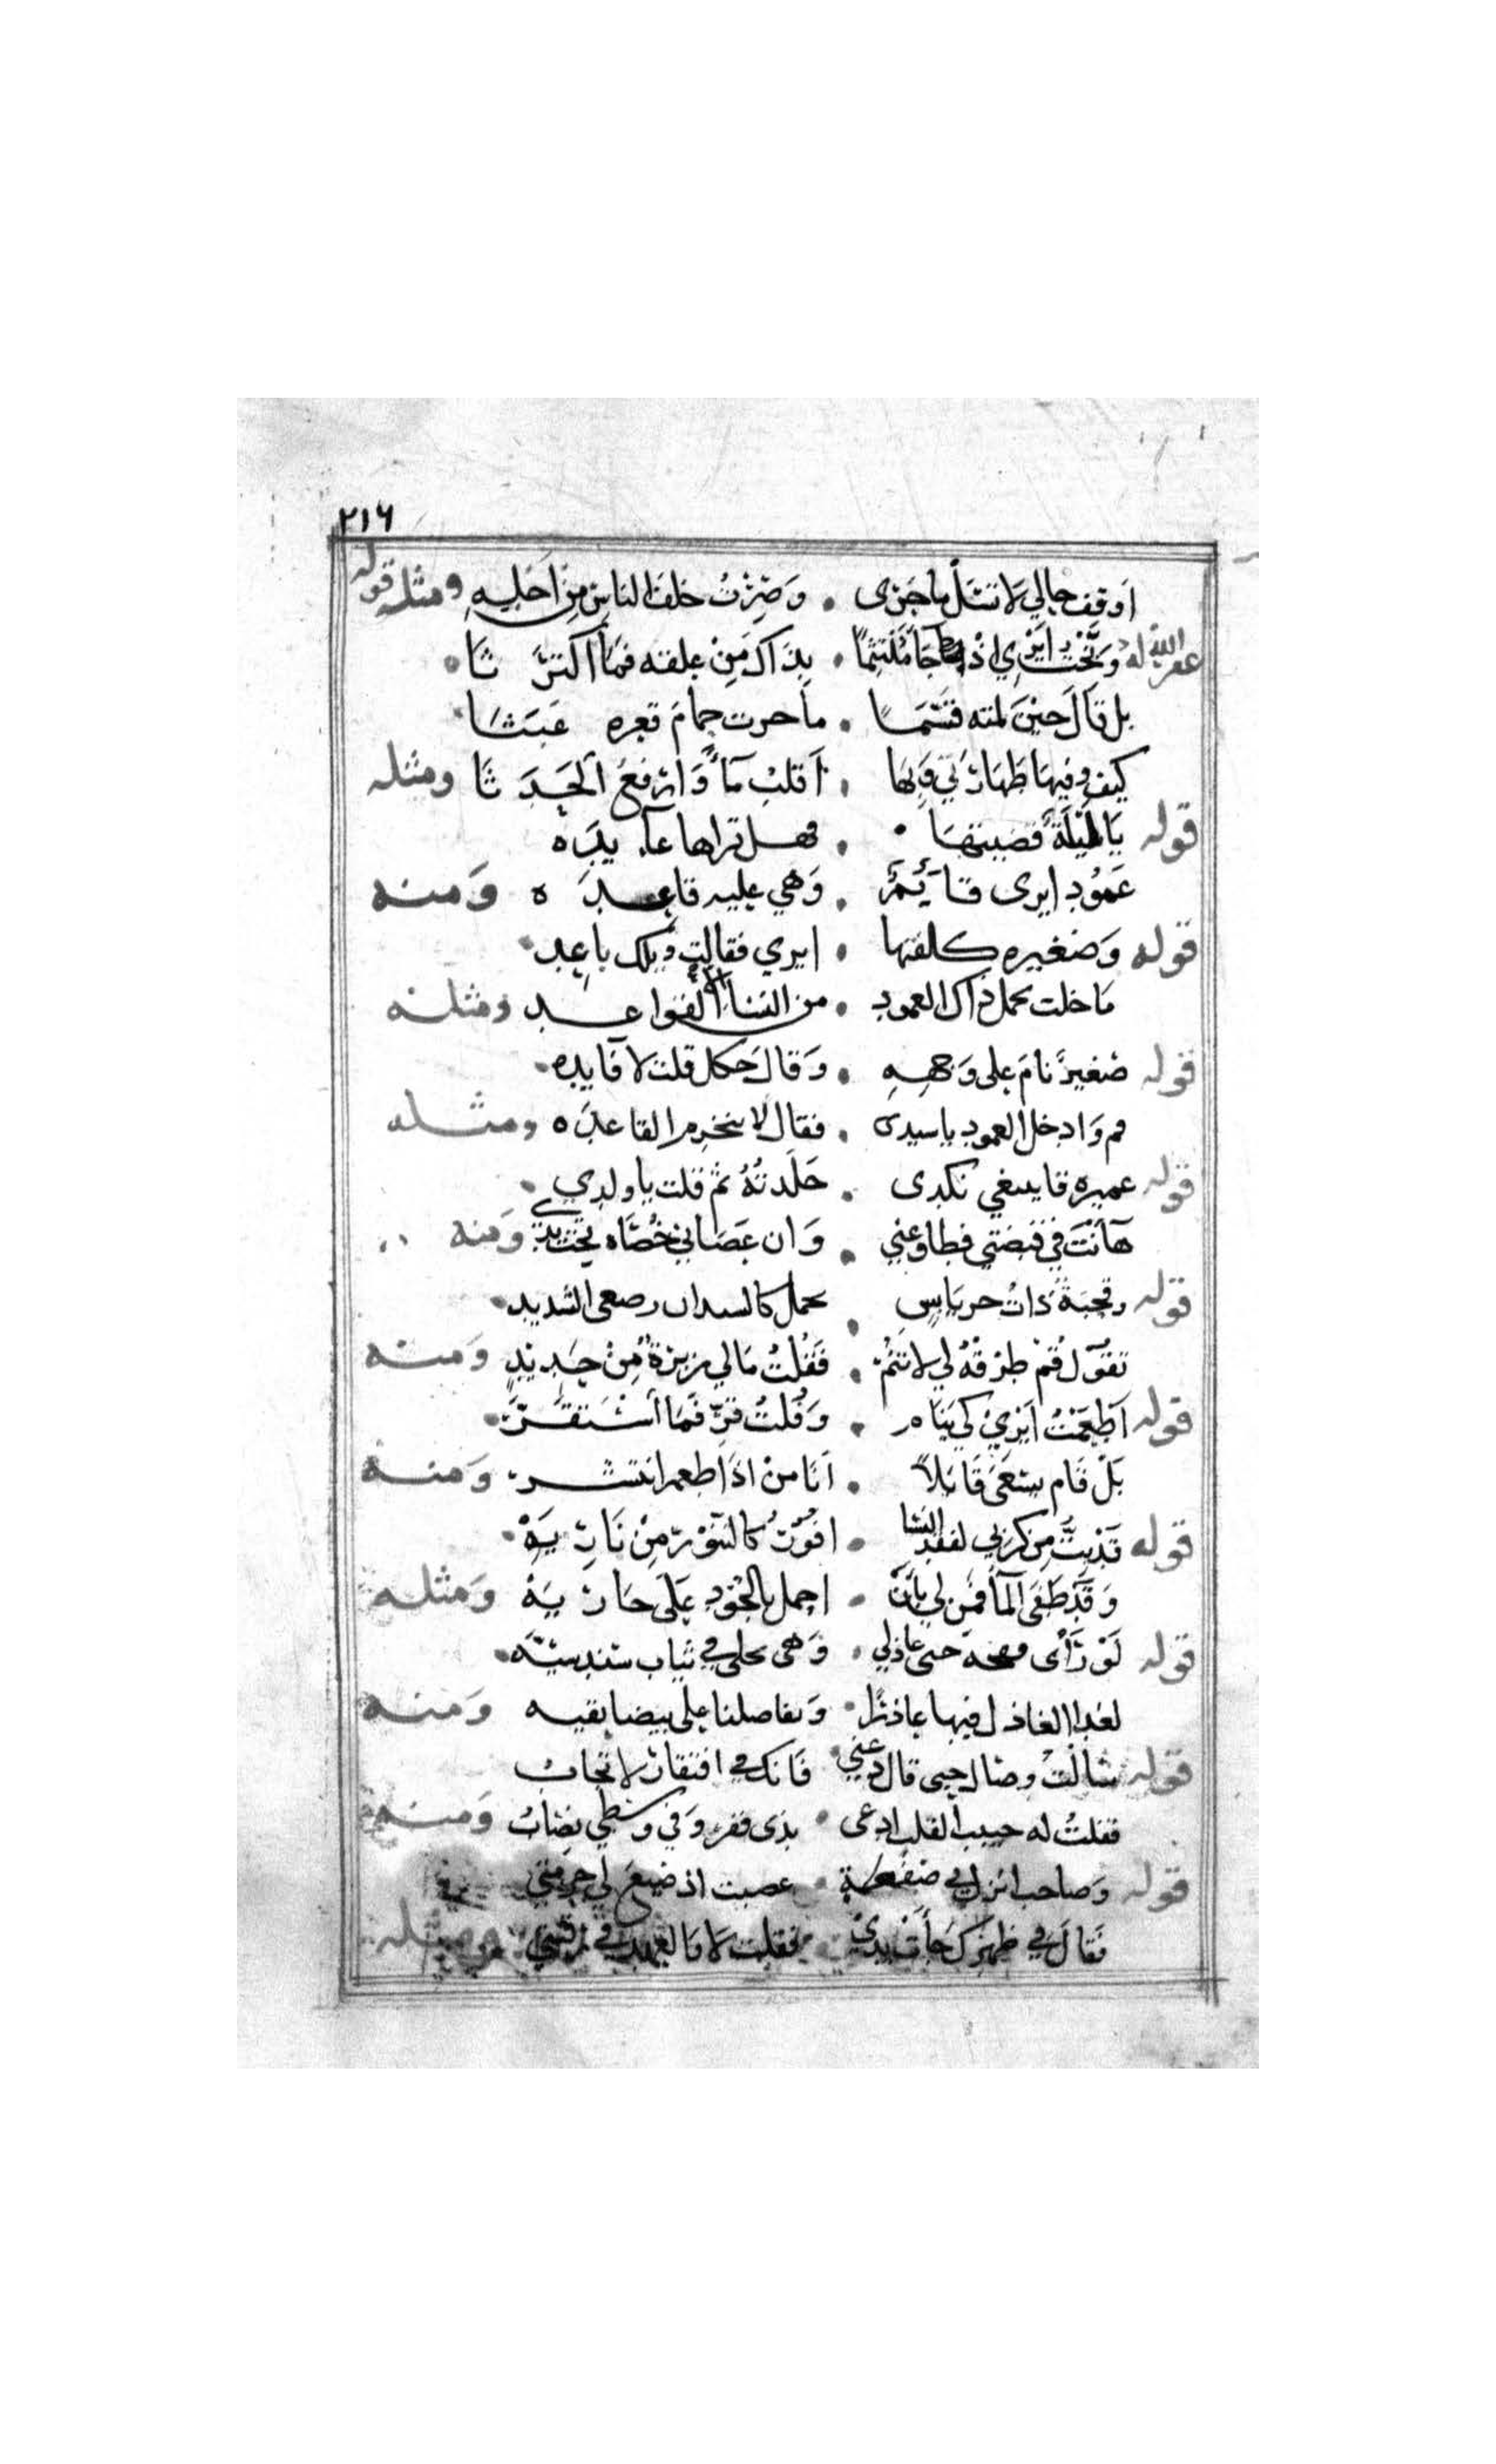 ٢١٦
اوقف حالي لا تسل ما جرى وصرت خلف الناس من اجله ومثله قوله
غفر الله له وبخت ايري اذ جا ملتثما بذاك من علقته فما اكترثا
بل قال حين لمته قسما ما حرت حمام قعره عبثا
كيف وفيها طهارتي وبها اقلب ماً وارفع الحدثا ومثله
قوله يا ليلة قضيتها فهل تراها عايده
عمود ايرى قايم وهي عليه قاعده ومنه
قوله وصغيره كلفتها ايري فقالت ويلك باعد
ما خلت يحمل ذاك العمود من النسا الا القواعد ومثله
قوله صغير نام على وجهه وقال حك قلت لا فايده
قم وادخل العمود يا سيدى فقال لا تنخرم القاعده ومثله
قوله عميره قا يبغي نكدى جلدته ثم قلت يا ولدي
ها انت في قبضتي فطاوعني وان عصاني خصاه تحت يدي ومنه
قوله وقحبة ذات حر يابس الشديد
تقول قم طرقه لي لا تنم فقلت مالي زبرة من حديد ومنه
قوله اطعمت ايري كي ينام وقلت قر فما استقر
بل قام يسعى قايلاً انا من اذا اطعم انتشر ومنه
قوله قد بت من كربي لفقد النسا افور كالتنور من ناريه
وقد طغى الما فمن لي بان احمل بالجود على جاريه ومثله
قوله لو رأى حبى عاذلي وهى في ثياب سندسيه
لغدا العاذل فيها عاذراً وتفاصلنا على بيضا نقيه ومنه
قوله سالت وصال حبى قال دعني فانك في افتقار لا تحاب
فقلت له حبيب القلب ادعى بذى فقر وفي وسطي نصاب ومنه
قوله وصاحب انزل بي صفعة عصبت اذ ضيع لي حرمتي
فقال في ظهرك جات يدى فقلت لا والعهد في رقبتي ومثله